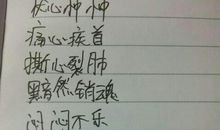 忧心忡忡
痛心疾首
撕心裂肺
黯然销魂
闷闷不乐